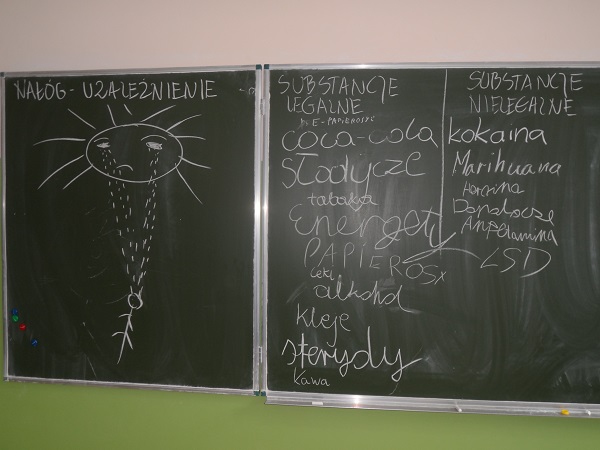 NAŁÓG - UZALEŻNIENIE
SUBSTANCJE
LEGALNE
E-PAPIEROSY
coca-cola
słodycze
tabaka
Energety
PAPIEROSY
Leki
alkohol
kleje
sterydy
kawa
SUBSTANCJE
NIELEGALNE
kokaina
Marihuana
Heroina
Dopalacze
Amfetamina
LSD